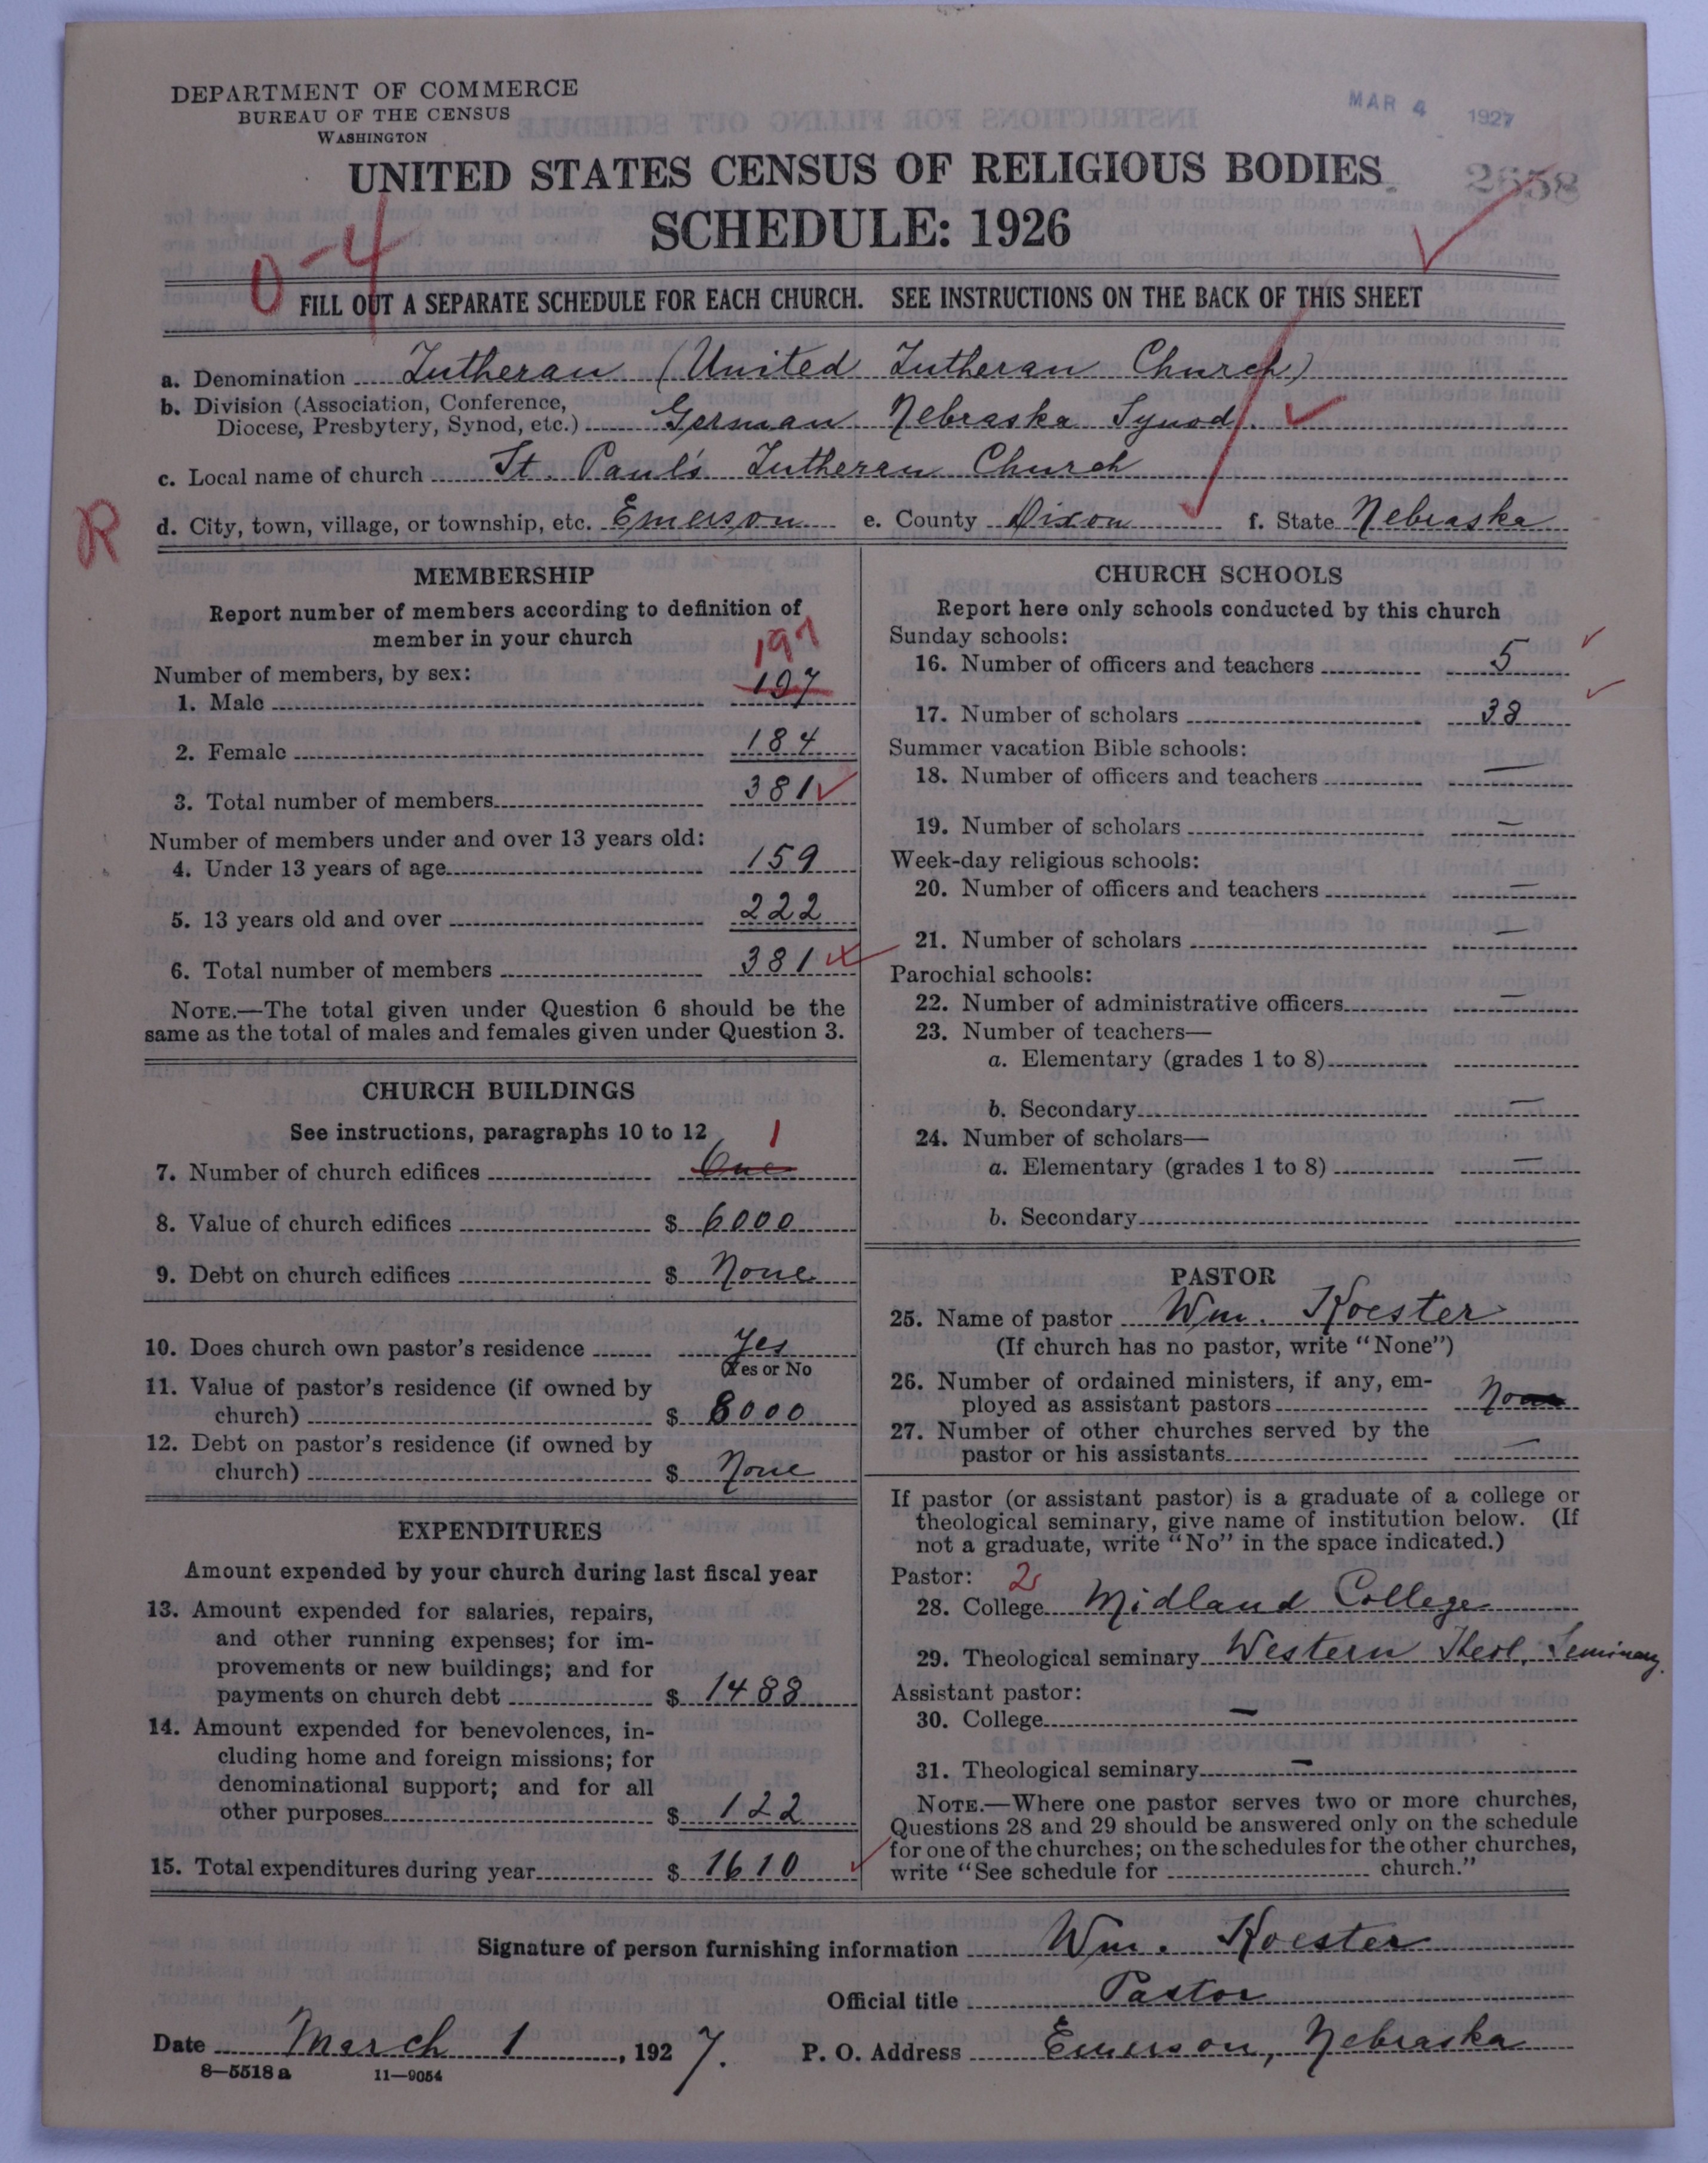 DEPARTMENT OF COMMERCE
BUREAU OF THE CENSUS
WASHINGTON
MAR 4 1927
UNITED STATES CENSUS OF RELIGIOUS BODIES
2658
SCHEDULE: 1926
0-4
FILL OUT A SEPARATE SCHEDULE FOR EACH CHURCH. SEE INSTRUCTIONS ON THE BACK OF THIS SHEET
a. Denomination Lutheran (United Lutheran Church)
b. Division (Association, Conference,
Diocese, Presbytery, Synod, etc.) German Nebraska Synod.
c. Local name of church St. Paul's Lutheran Church
R
d. City, town, village, or township, etc. Emerson e. County Dixon f. State Nebraska
MEMBERSHIP
Report number of members according to definition of
member in your church
197
Number of members, by sex:
1. Male 197
2. Female 184
3. Total number of members 381
Number of members under and over 13 years old:
4. Under 13 years of age 159
5. 13 years old and over 222
6. Total number of members 381
NOTE.—The total given under Question 6 should be the
same as the total of males and females given under Question 3.
CHURCH BUILDINGS
See instructions, paragraphs 10 to 12
1
7. Number of church edifices One
8. Value of church edifices $ 6000
9. Debt on church edifices $ None
10. Does church own pastor's residence Yes
(Yes or No
11. Value of pastor's residence (if owned by
church) $ 8000
12. Debt on pastor's residence (if owned by
church) $ None
EXPENDITURES
Amount expended by your church during last fiscal year
13. Amount expended for salaries, repairs,
and other running expenses; for im-
provements or new buildings; and for
payments on church debt $ 1488
14. Amount expended for benevolences, in-
cluding home and foreign missions; for
denominational support; and for all
other purposes $ 122
15. Total expenditures during year $ 1610
CHURCH SCHOOLS
Report here only schools conducted by this church
Sunday schools:
16. Number of officers and teachers 5
17. Number of scholars 38
Summer vacation Bible schools:
18. Number of officers and teachers —
19. Number of scholars —
Week-day religious schools:
20. Number of officers and teachers —
21. Number of scholars —
Parochial schools:
22. Number of administrative officers —
23. Number of teachers—
a. Elementary (grades 1 to 8)
b. Secondary —
24. Number of scholars—
a. Elementary (grades 1 to 8) —
b. Secondary
PASTOR
25. Name of pastor Wm. Koester
(If church has no pastor, write "None")
26. Number of ordained ministers, if any, em-
ployed as assistant pastors None
27. Number of other churches served by the
pastor or his assistants —
If pastor (or assistant pastor) is a graduate of a college or
theological seminary, give name of institution below. (If
not a graduate, write "No" in the space indicated.)
Pastor: 2
28. College Midland College
29. Theological seminary Western Theol. Seminary.
Assistant pastor:
30. College —
31. Theological seminary —
NOTE.—Where one pastor serves two or more churches,
Questions 28 and 29 should be answered only on the schedule
for one of the churches; on the schedules for the other churches,
write "See schedule for church."
Signature of person furnishing information Wm. Koester
Official title Pastor
Date March 1, 1927. P. O. Address Emerson, Nebraska
8—5518 a 11—9054